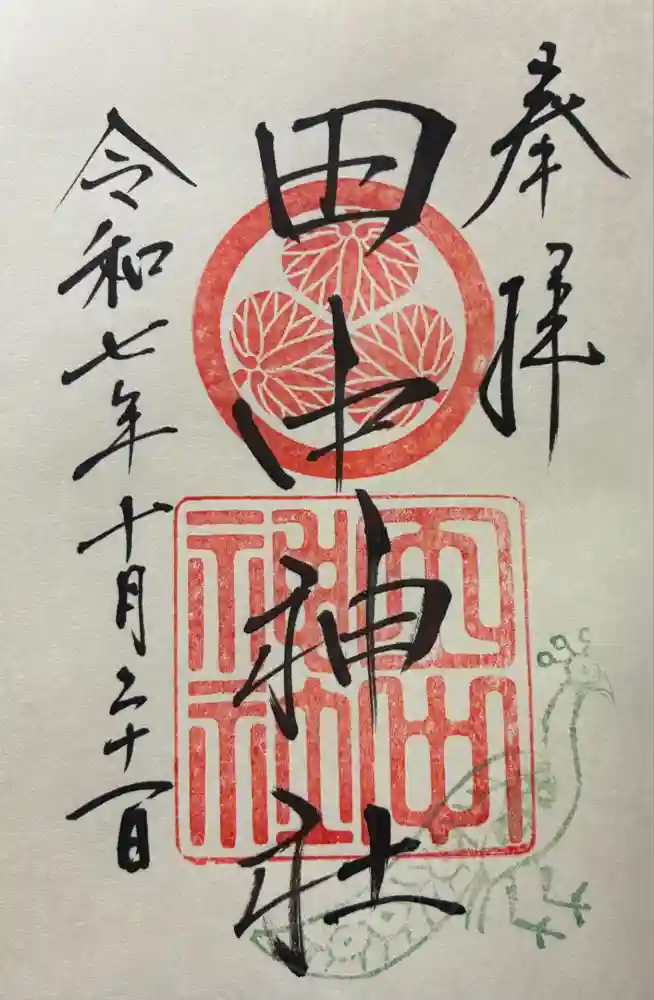 奉拝
田中神社
田中神社
令和七年十月二十一日